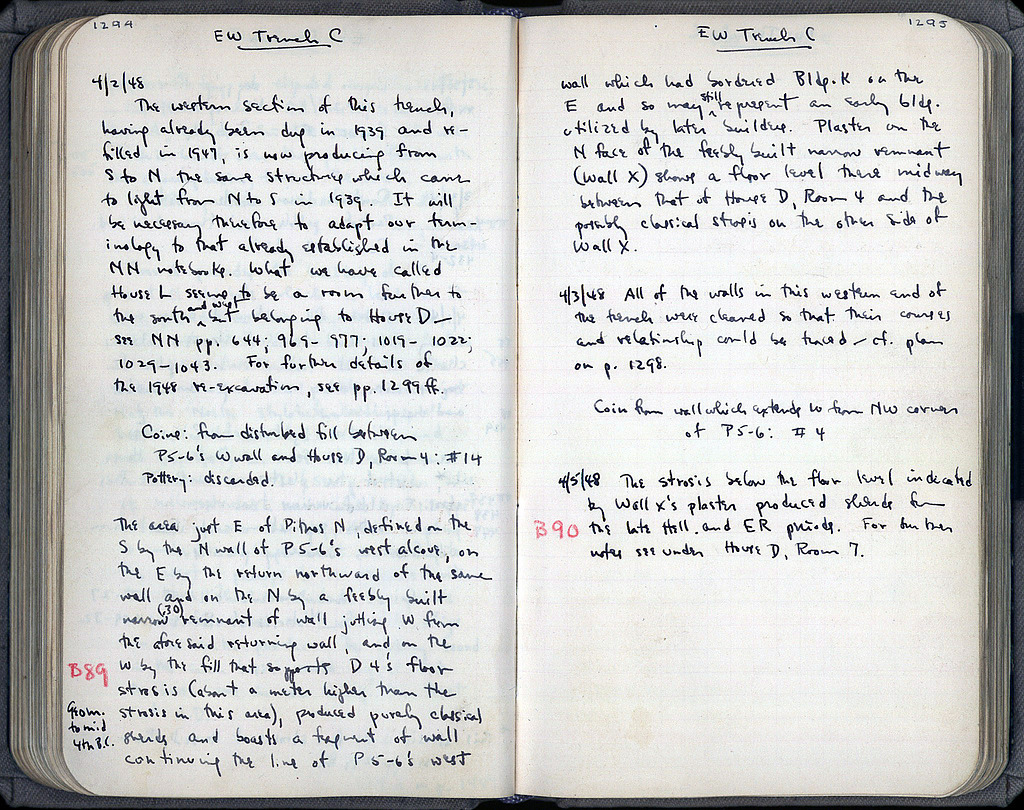 1294
EW Trench C
4/2/48
The western section of this trench,
having already been dug in 1939 and re-
filled in 1947, is now producing from
S to N the same structures which came
to light from N to S in 1939. It will
be necessary therefore to adapt our term-
inology to that already established in the
NN notebooks. What we have called
House L seems to be a room further to
the south and west but belonging to House D —
see NN pp. 644; 969-977; 1019-1022;
1029-1043. For further details of
the 1948 re-excavation, see pp. 1299 ff.
Coins: from disturbed fill between
P5-6's W wall and House D, Room 4: #14
Pottery: discarded.
The area just E of Pithos N, defined on the
S by the N wall of P5-6's west alcove, on
the E by the return northward of the same
wall and on the N by a feebly built
narrow (.30) remnant of wall jutting W from
the aforesaid returning wall, and on the
W by the fill that supports D4's floor
B89
strosis (about a meter higher than the
strosis in this area), produced purely classical
Geom.
to mid
4th B.C.
sherds and boasts a fragment of wall
continuing the line of P5-6's west
1295
EW Trench C
wall which had bordered Bldg. K on the
E and so may still represent an early bldg.
utilized by later builders. Plaster on the
N face of the feebly built narrow remnant
(Wall X) shows a floor level there midway
between that of House D, Room 4 and the
possibly classical strosis on the other side of
Wall X.
4/3/48 All of the walls in this western end of
the trench were cleaned so that their courses
and relationship could be traced — cf. plan
on p. 1298.
Coin from wall which extends W from NW corner
of P5-6: #4
4/5/48 The strosis below the floor level indicated
by Wall X's plaster produced sherds from
B90
the late Hell. and ER periods. For further
notes see under House D, Room 7.